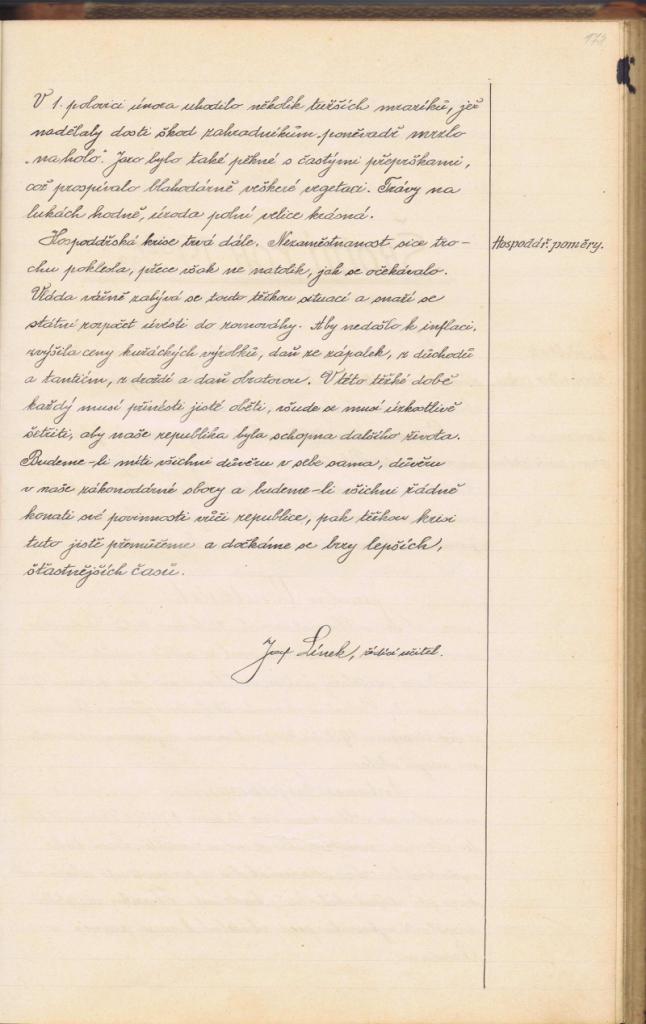 173
V 1. polovici února uhodilo několik tužších mrazíků, jež
nadělaly dosti škod zahradníkům, poněvadž mrzlo
„na holo“. Jaro bylo také pěkné s častými přeprškami,
což prospívalo blahodárně veškeré vegetaci. Trávy na
lukách hodně, úroda polní velice krásná.
Hospodářská krise trvá dále. Nezaměstnanost sice tro-
Hospodář. poměry.
chu poklesla, přece však ne natolik, jak se očekávalo.
Vláda vážně zabývá se touto těžkou situací a snaží se
státní rozpočet uvésti do rovnováhy. Aby nedošlo k inflaci,
zvýšila ceny kuřáckých výrobků, daň ze zápalek, z důchodů
a tantiém, z droždí a daň obratovou. V této těžké době
každý musí přinésti jisté oběti, všude se musí úzkostlivě
šetřiti, aby naše republika byla schopna dalšího života.
Budeme-li míti všichni důvěru v sebe sama, důvěru
v naše zákonodárné sbory a budeme-li všichni řádně
konati své povinnosti vůči republice, pak těžkou krisi
tuto jistě přemůžeme a dočkáme se brzy lepších,
šťastnějších časů.
Josef Línek, řídící učitel.